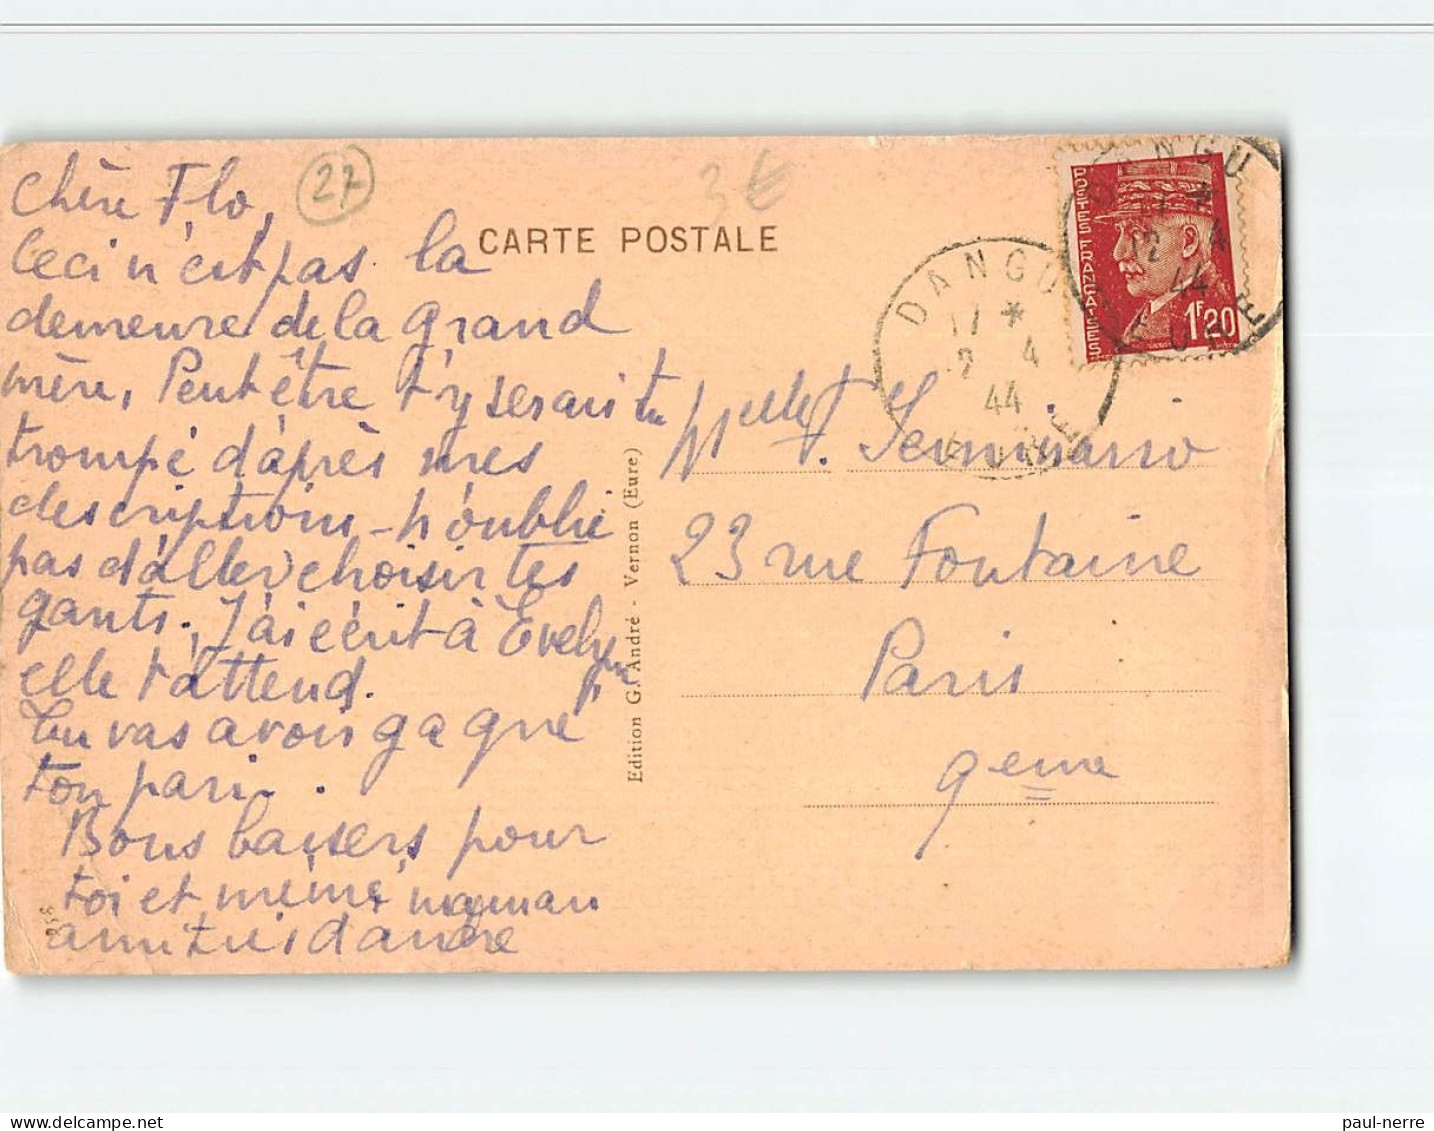 Chère Flo,
Ceci n'est pas la
demeure de la grand
mère, Peut être t'y serais tu
trompé d'après mes
descriptions - n'oublie
pas d'aller choisir tes
gants. J'ai écrit à Evelyne
elle t'attend.
tu vas avoir gagné
ton pari.
Bons baisers pour
toi et mémé, maman
amitiés d'andré
27
3€
CARTE POSTALE
Edition G. André - Vernon (Eure)
DANGU
17 *
2 4
44
EURE
POSTES FRANÇAISES
1F20
DANGU
17 *
2 4
44
EURE
Melle F.
23 rue Fontaine
Paris
9eme
paul-nerre